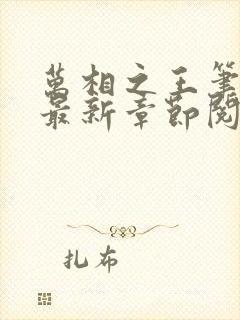 萬相之王筆
最新章節閱
扎布